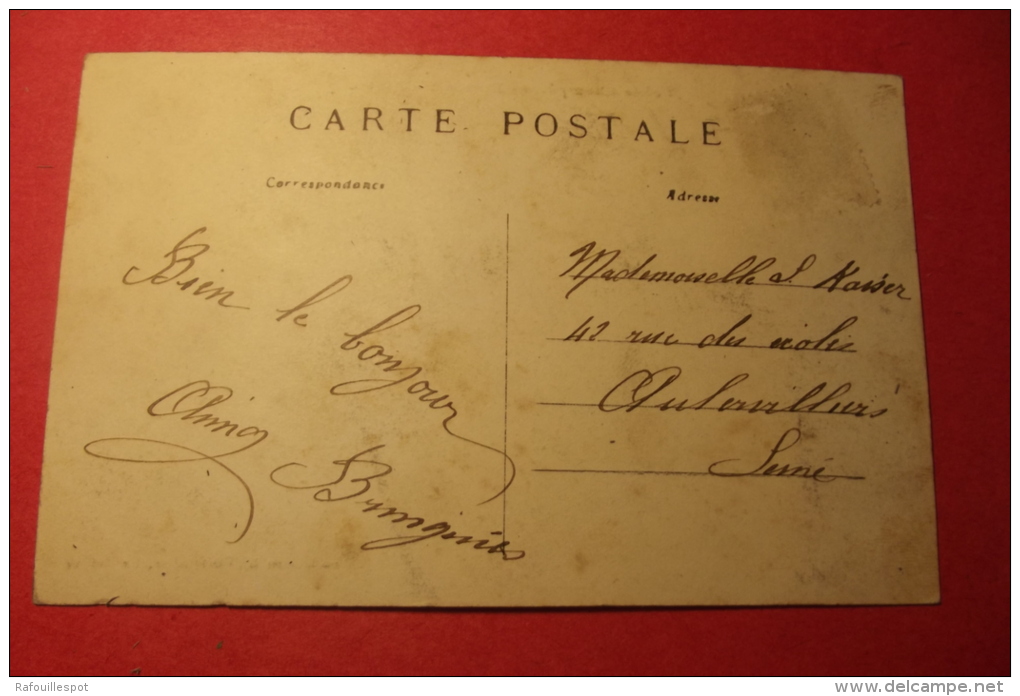 CARTE POSTALE
Correspondance
Adresse
Bien le bonjour
Mademoiselle S. Kaiser
42 rue des écoles
Aubervilliers
Seine
Rafouillespot
www.delcampe.net